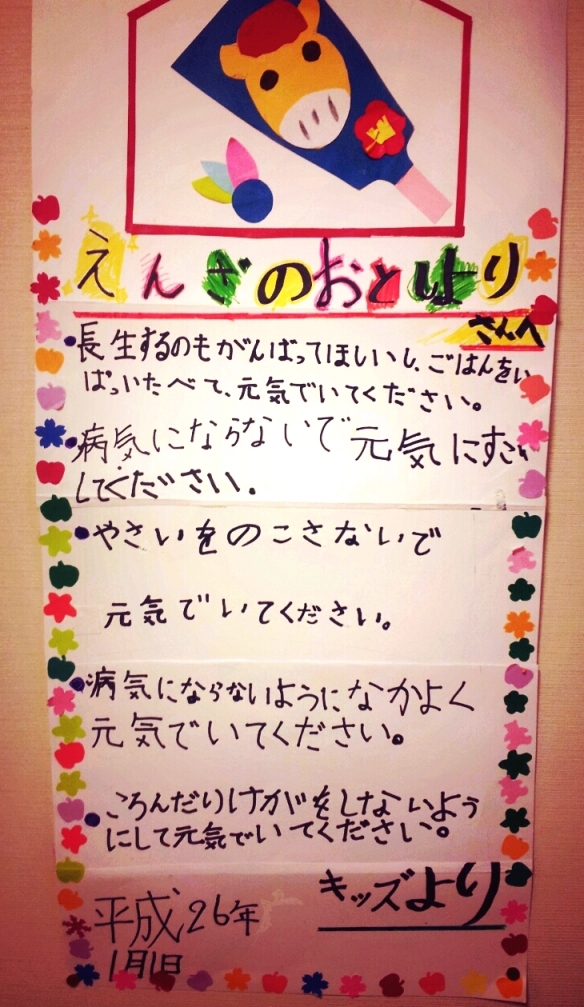 えんざのおとしより
さんへ
・長生するのもがんばってほしいし、ごはんをい
ぱっいたべて、元気でいてください。
・病気にならないで元気にすご
してください。
・やさいをのこさないで
元気でいてください。
・病気にならないようになかよく
元気でいてください。
・ころんだりけがをしないよう
にして元気でいてください。
キッズより
平成26年
1月1日